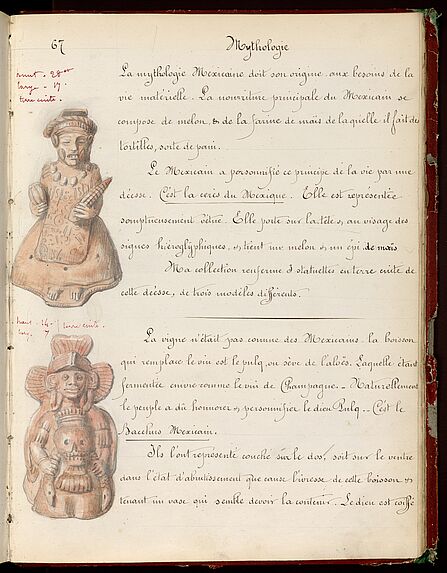 67
Mythologie
haut - 28 cm
large - 17 -
terre cuite.
La mythologie Mexicaine doit son origine aux besoins de la
vie matérielle. La nourriture principale du Mexicain se
compose de melon, & de la farine de maïs de laquelle il fait des
tortilles, sorte de pain.
Le Mexicain a personnifié ce principe de la vie par une
déesse. C'est la cerès du Mexique. Elle est représentée
somptueusement vêtue. Elle porte sur la tête & au visage des
signes hiéroglyphiques, & tient un melon & un épi de maïs
Ma collection renferme 3 statuettes en terre cuite de
cette déesse, de trois modèles différents.
haut - 14 - terre cuite.
7
La vigne n'était pas connue des Mexicains. la boisson
qui remplace le vin est le pulq, ou sève de l'aloës. Laquelle étant
fermentée enivre comme le vin de Champagne. - Naturellement
le peuple a dû honorer & personnifier le dieu Pulq. - C'est le
Bacchus Mexicain.
Ils l'ont représenté couché sur le dos, soit sur le ventre
dans l'état d'abrutissement que cause l'ivresse de cette boisson &
tenant un vase qui semble devoir la contenir. Le dieu est coiffé